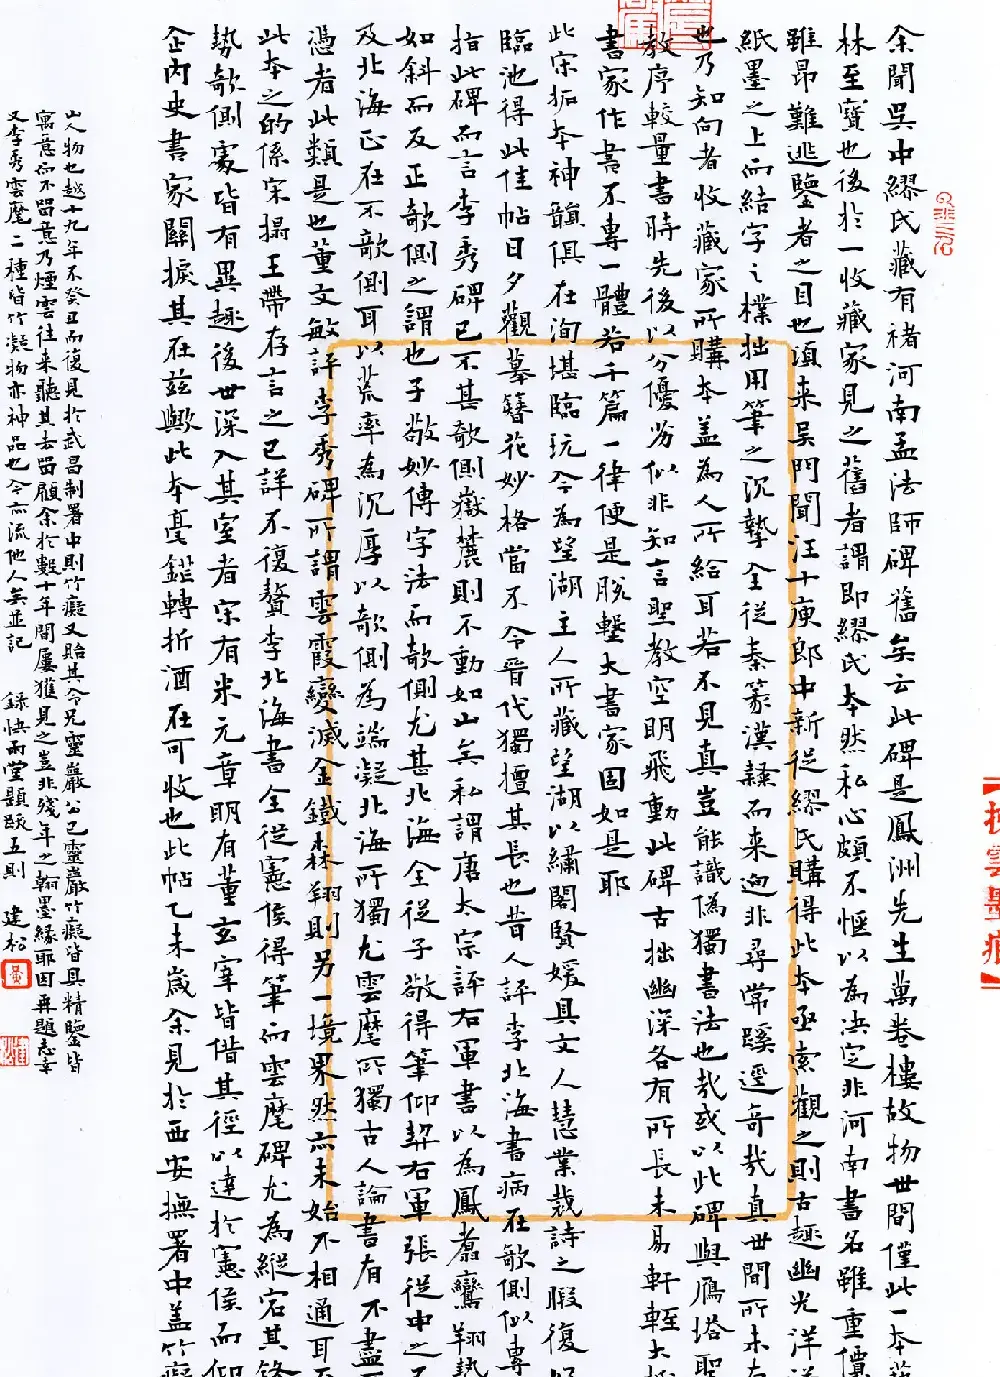 余聞吳中繆氏藏有褚河南孟法師碑舊矣云此碑是鳳洲先生萬卷樓故物世間僅此一本
林至寶也後於一收藏家見之舊者謂即繆氏本然私心頗不愜以為決定非河南書名雖重價
雖昂難逃鑒者之目也頃來吳門聞汪十庾郎中新從繆氏購得此本亟索觀之則古趣幽光洋
紙墨之上而結字之樸拙用筆之沉摯全從秦篆漢隸而來迥非尋常蹊逕奇哉真世間所未
也乃知向者收藏家所購本蓋為人所給耳若不見真豈能識偽獨書法也哉或以此碑與鴈塔聖
教序較量書時先後以分優劣似非知言聖教空明飛動此碑古拙幽深各有所長未易軒輊大
書家作書不專一體若千篇一律便是脫墼大書家固如是耶
此宋拓本神韻俱在洵堪臨玩今為望湖主人所藏望湖以繡閣賢媛具文人慧業裁詩之暇復
臨池得此佳帖日夕觀摹簪花妙格當不令晉代獨擅其長也昔人評李北海書病在欹側似專
指此碑而言李秀碑已不甚欹側嶽麓則不動如山矣私謂唐太宗評右軍書以為鳳翥鸞翔勢
如斜而反正欹側之謂也子敬妙傳字法而欹側尤甚北海全從子敬得筆仰契右軍張從中之
及北海正在不欹側耳以荒率為沉厚以欹側為端凝北海所獨尤雲麾所獨古人論書有不盡
憑者此類是也董文敏評李秀碑所謂雲霞變滅金鐵森翔則另一境界然亦未始不相通耳
此本之的係宋搨王帶存言之已詳不復贅李北海書全從憲侯得筆而雲麾碑尤為縱宕其
勢欹側處皆有異趣後世深入其室者宋有米元章明有董玄宰皆借其徑以達於憲侯而仰
企內史書家關捩其在茲歟此本毫鋩轉折酒在可收也此帖乙未歲余見於西安撫署中蓋竹
山人物也越十九年不癸丑而復見於武昌制署中則竹癡又貽其令兄靈巖公已靈巖竹癡皆具精鑒皆
寓意而不留意乃煙雲往來聽其去留顧余於數十年間屢獲見之豈非殘年之翰墨緣耶因再題志幸
又李秀雲麾二種皆竹凝物亦神品也今亦流他人矣並記 錄快雨堂題跋五則 建松